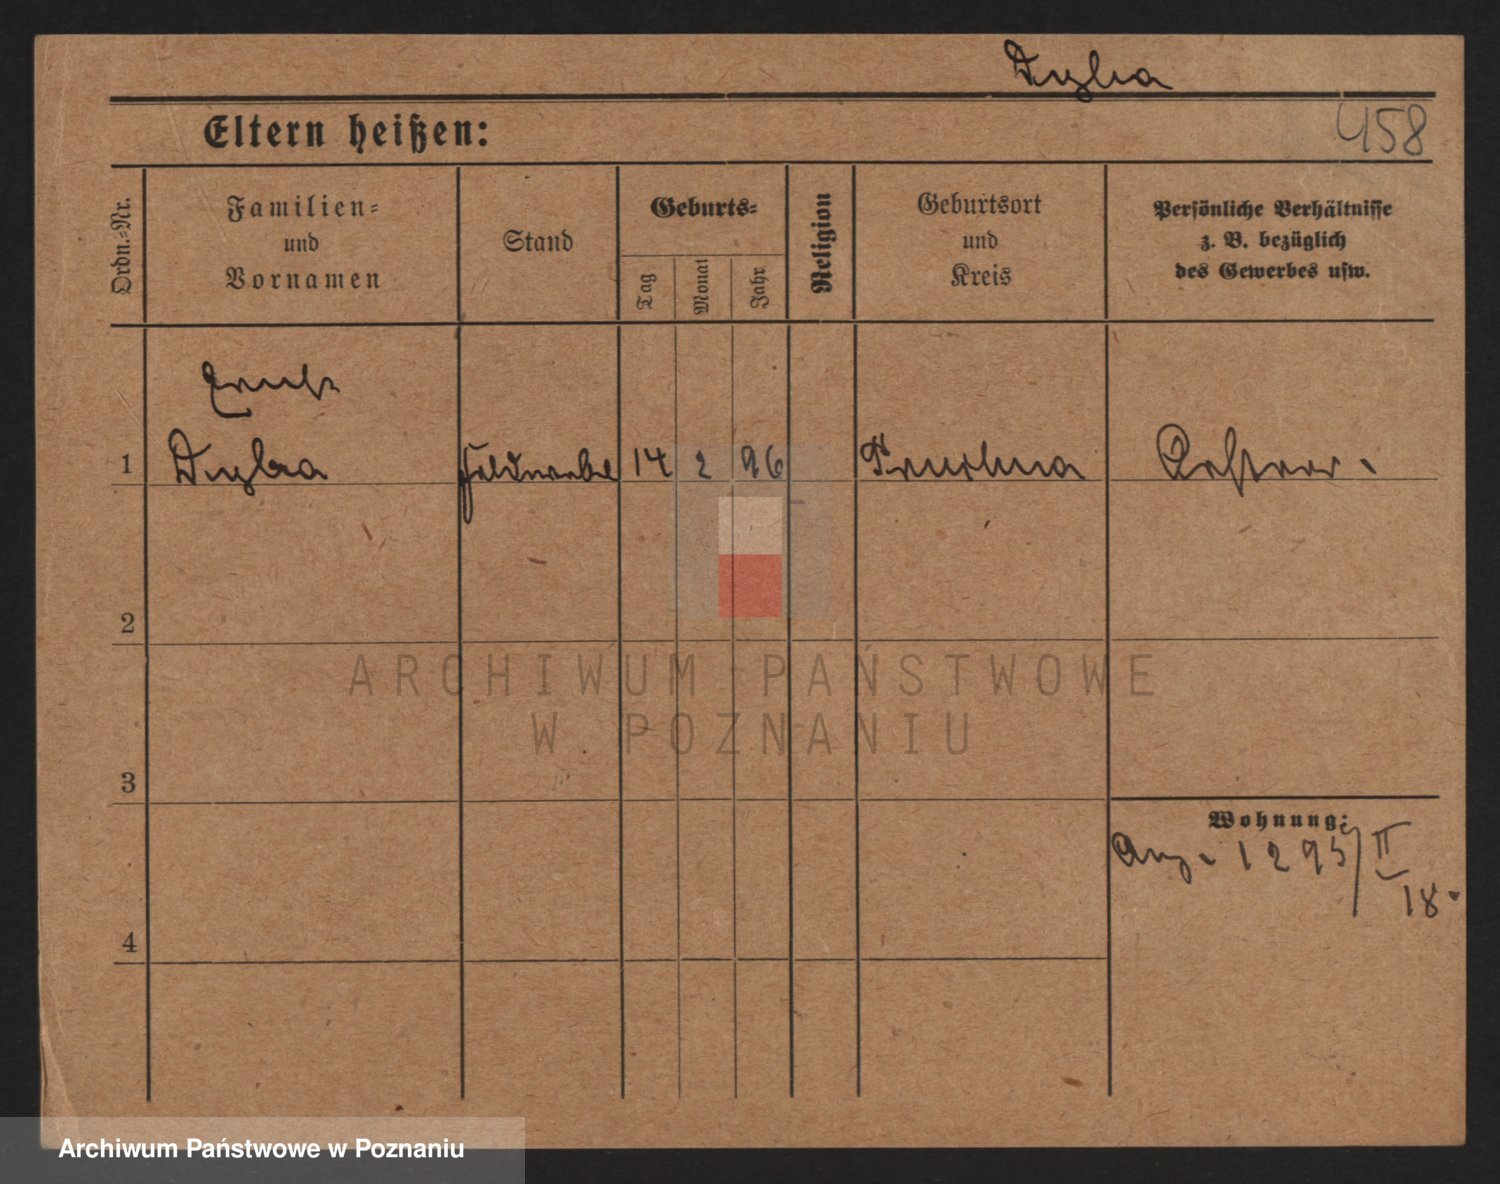 Dyba
458
Eltern heißen:
Ordn.-Nr.
Familien-
und
Vornamen
Stand
Geburts-
Tag
Monat
Jahr
Religion
Geburtsort
und
Kreis
Persönliche Verhältnisse
z. B. bezüglich
des Gewerbes usw.
Ernst
1 Dyba Feldwebel 14 2 96
2
3
4
Wohnung:
1295/II
18.
ARCHIWUM PAŃSTWOWE
W POZNANIU
Archiwum Państwowe w Poznaniu